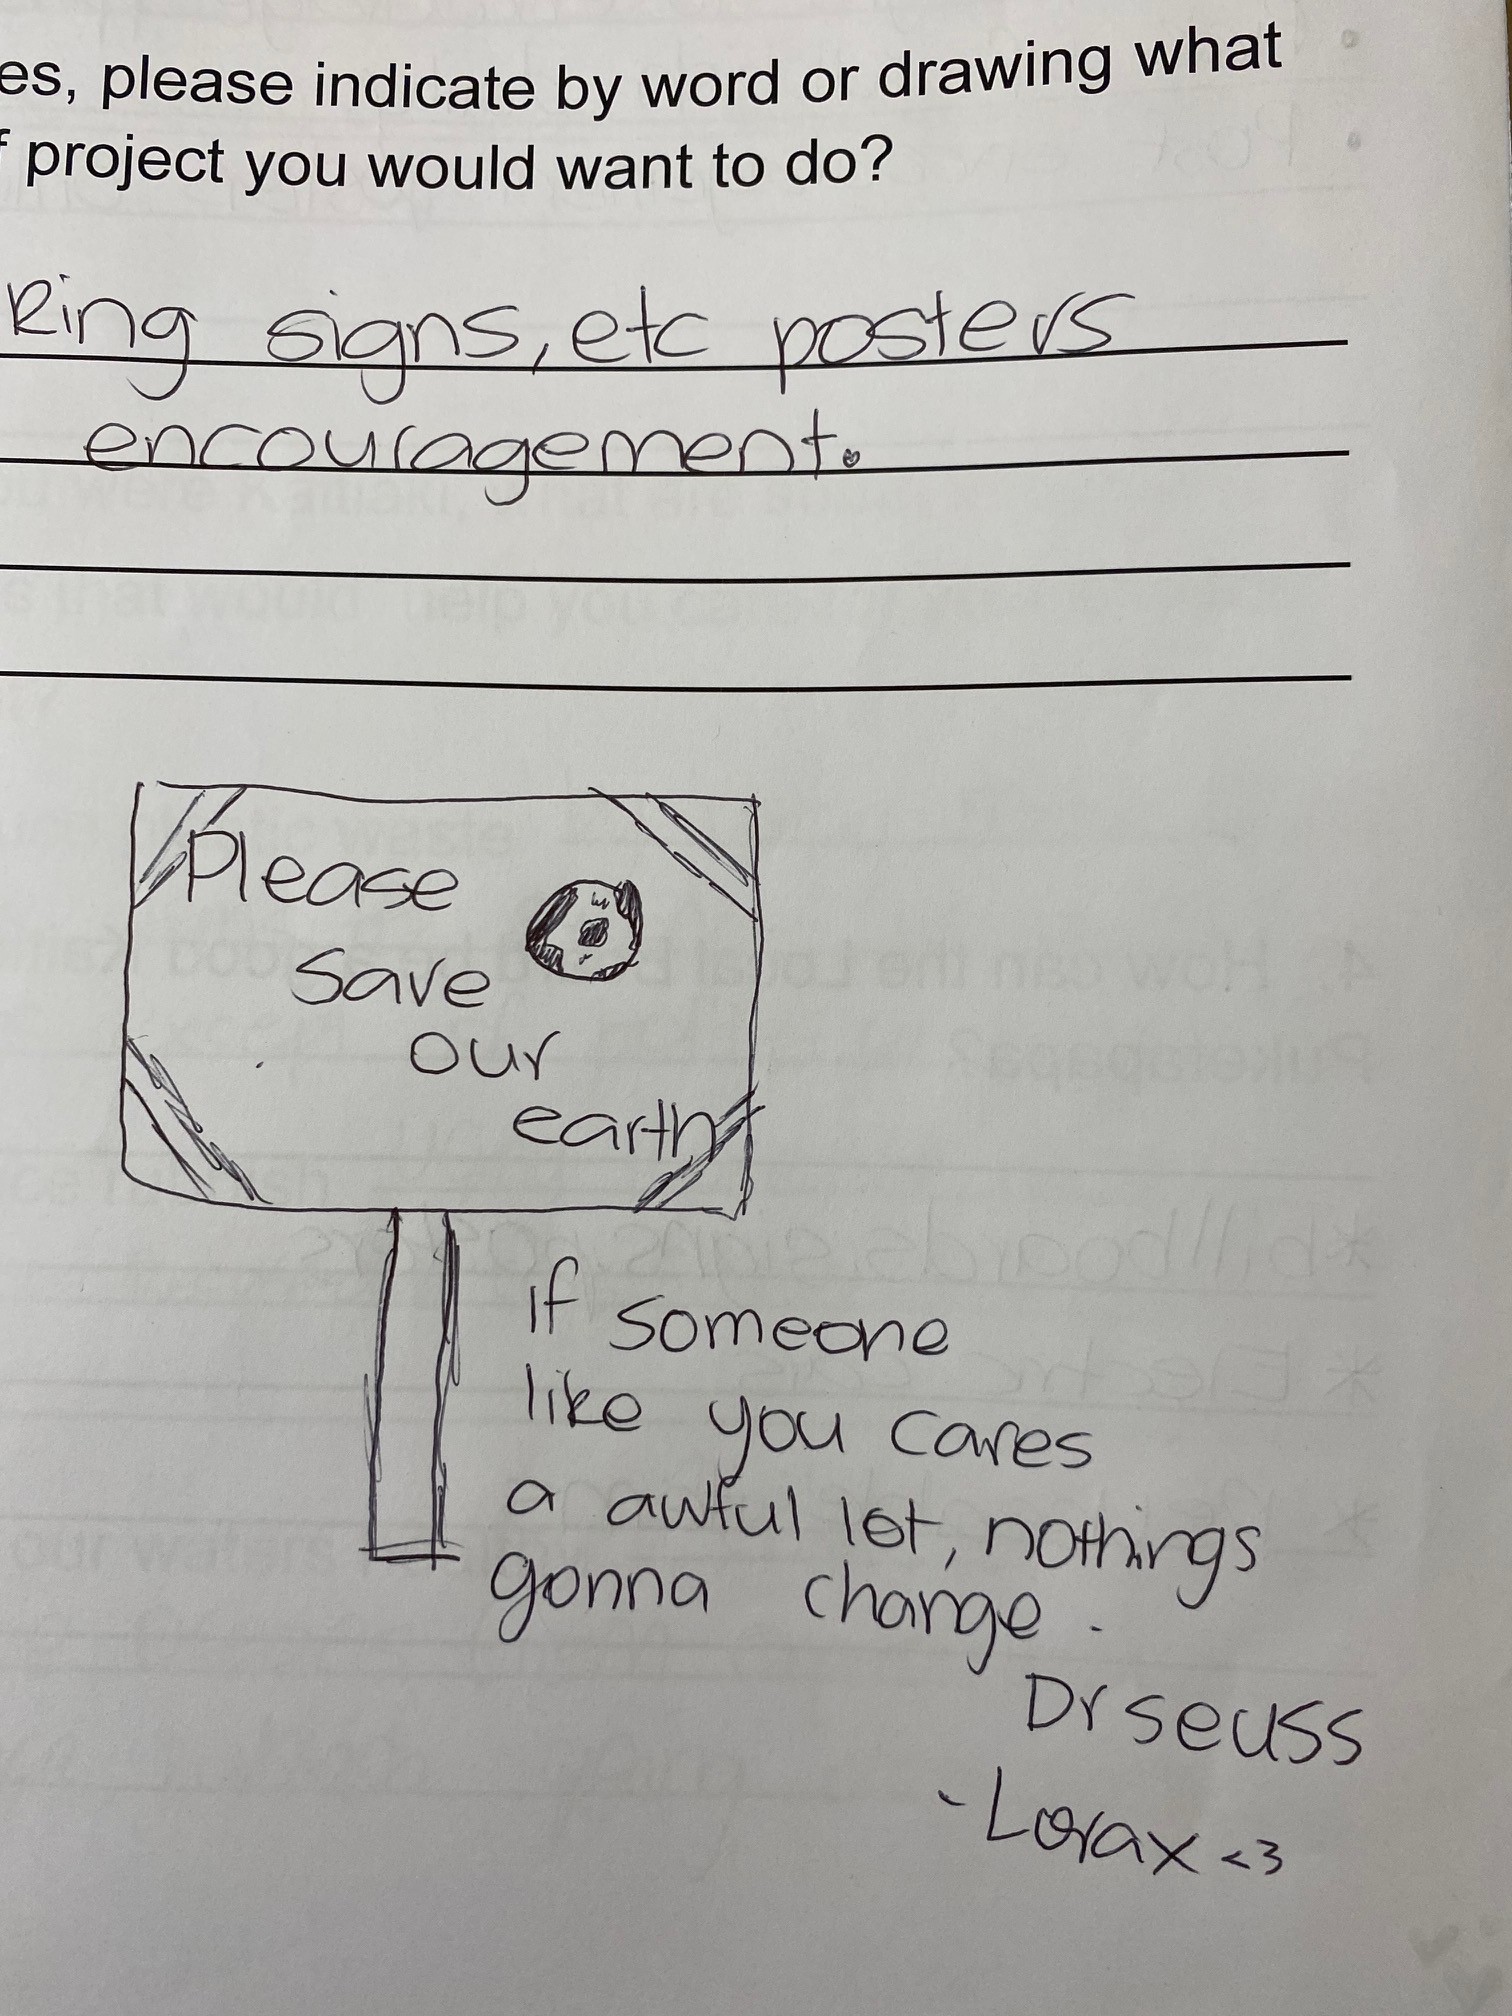 es, please indicate by word or drawing what
f project you would want to do?
king signs, etc posters
encouragement.
Please
save
our
earth
if someone
like you cares
a awful lot, nothings
gonna change.
Dr seuss
- Lorax <3